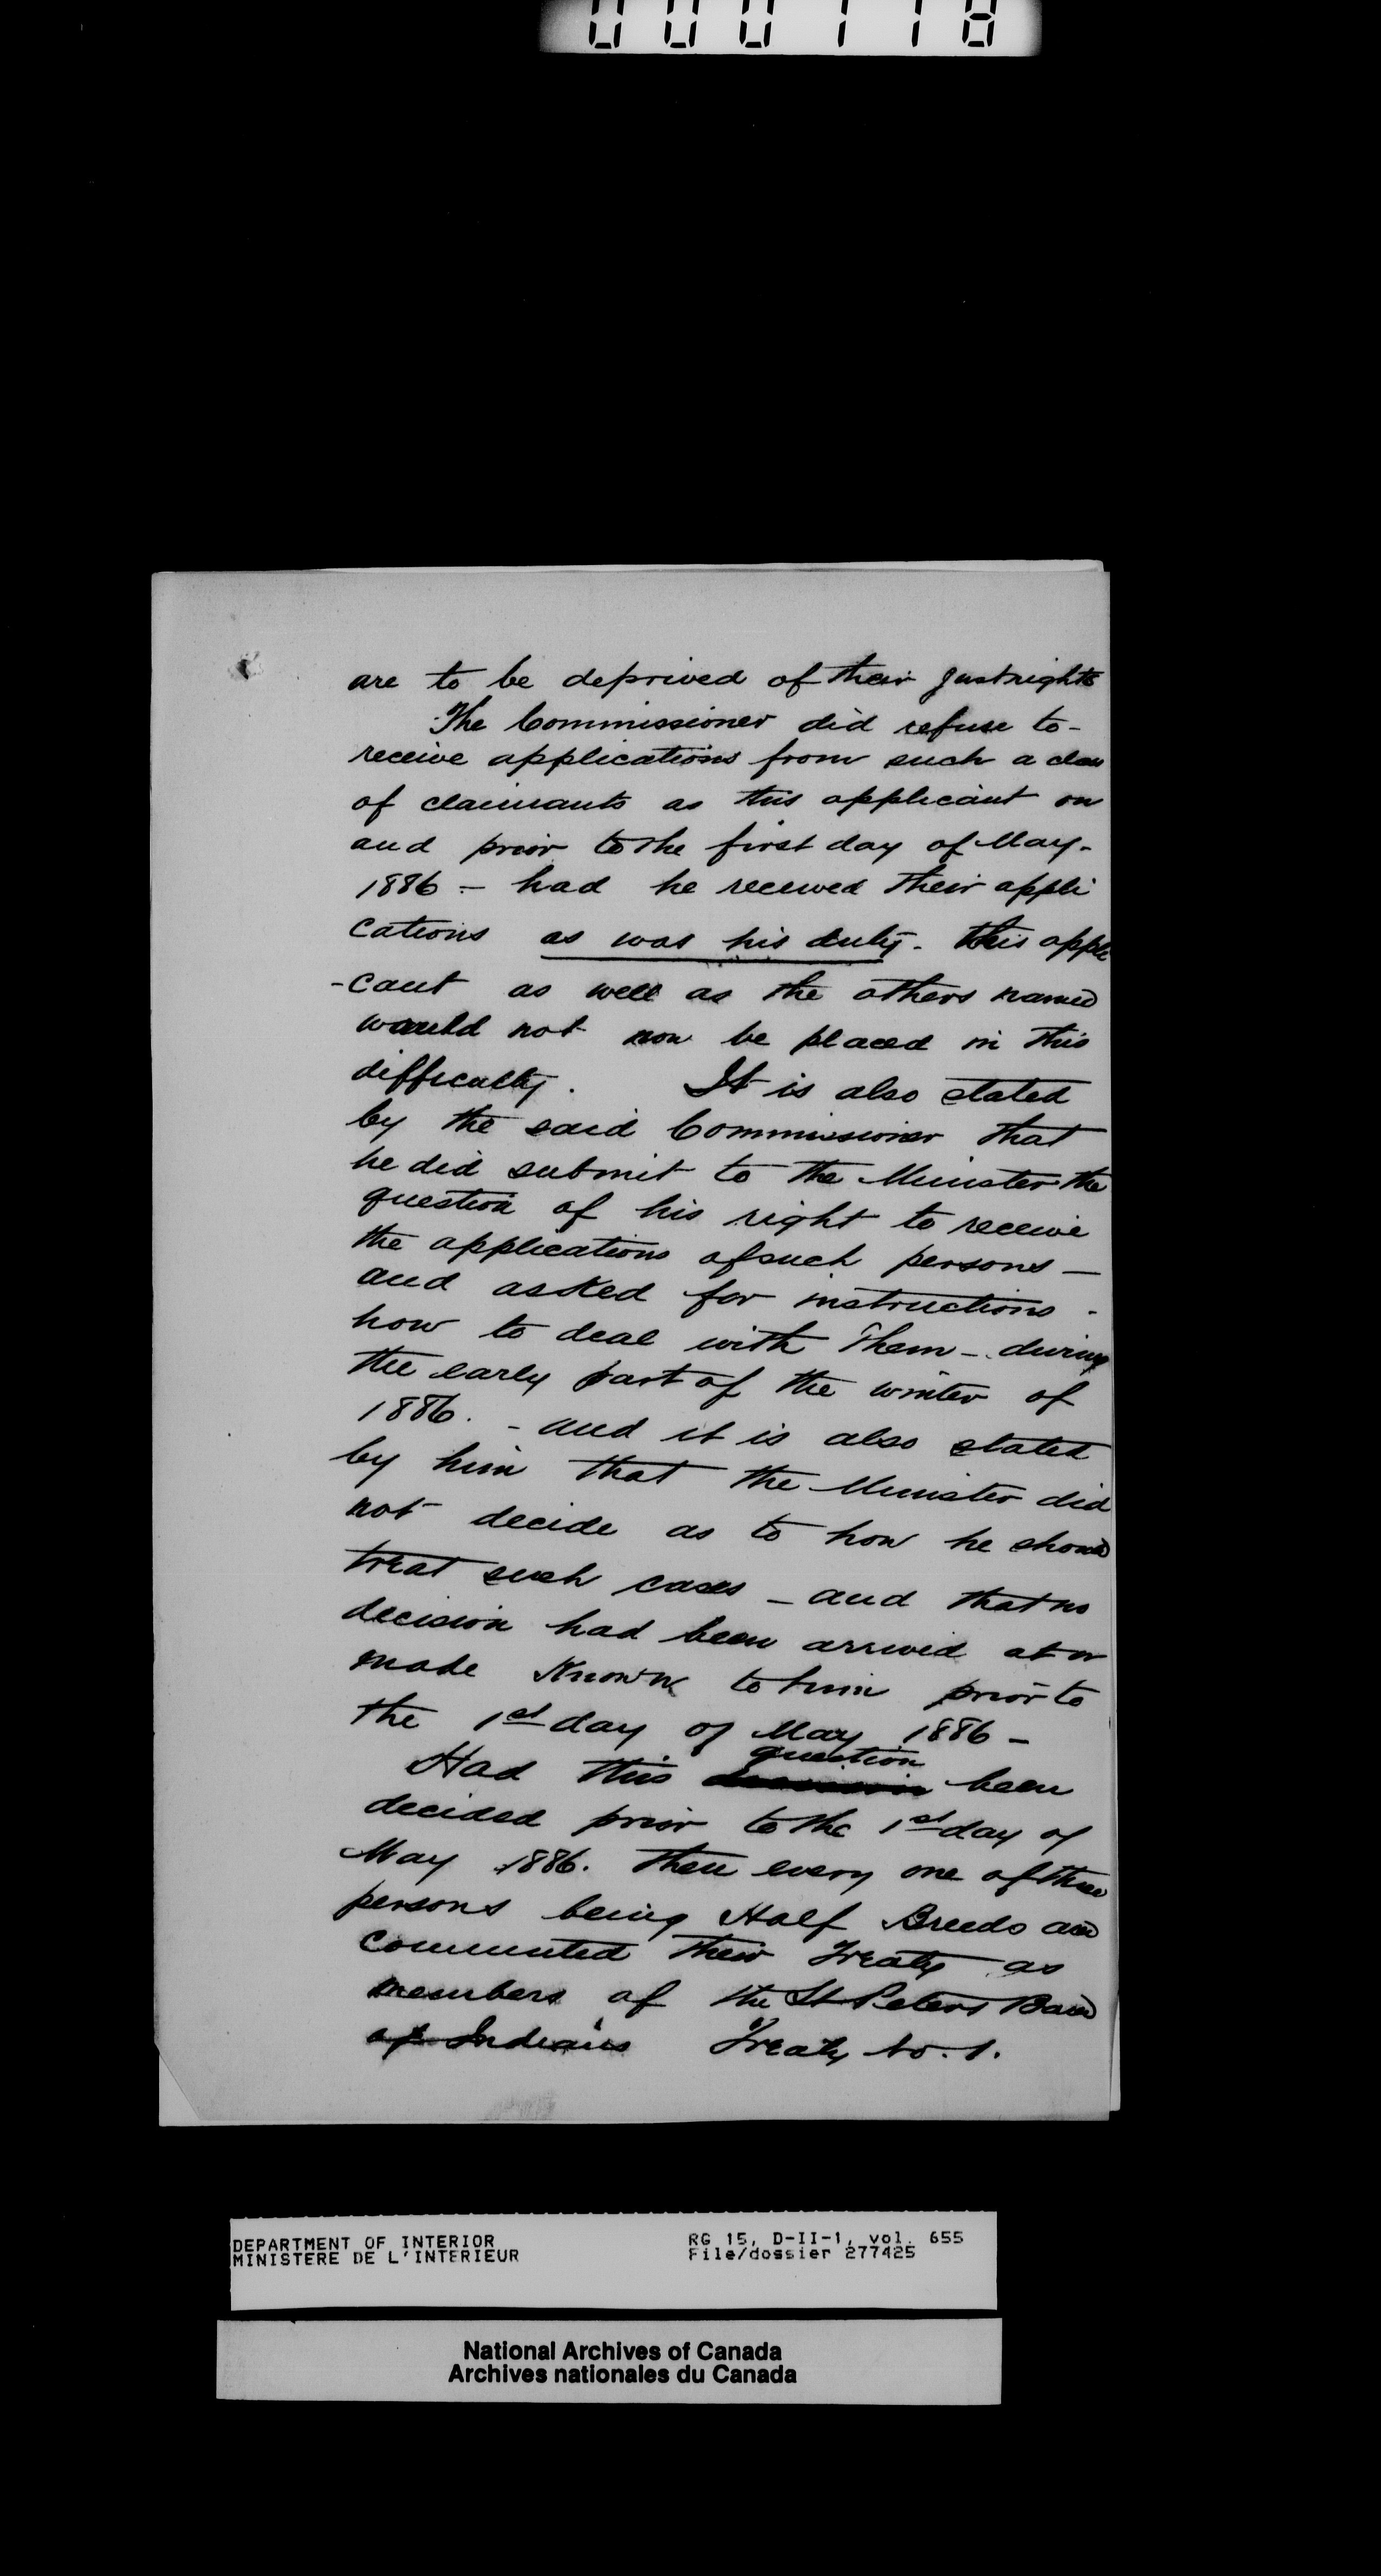 000118
are to be deprived of their just rights
The Commissioner did refuse to-
receive applications from such a class
of claimants as this applicant on
and prior to the first day of May-
1886 - had he received their appli
cations as was his duty. this appli
-cant as well as the others named
would not now be placed in this
difficulty. It is also stated
by the said Commissioner that
he did submit to the Minister the
question of his right to receive
the applications of such persons -
and asked for instructions -
how to deal with them - during
the early part of the winter of
1886. - and it is also stated
by him that the Minister did
not decide as to how he should
treat such cases - and that no
decision had been arrived at or
made known to him prior to
the 1st day of May 1886 -
question
Had this been
decided prior to the 1st day of
May 1886. then every one of these
persons being Half Breeds and
commuted their Treaty as
members of the St Peters Band
of Indians Treaty No. 1.
DEPARTMENT OF INTERIOR
MINISTERE DE L'INTERIEUR
RG 15, D-II-1, vol. 655
File/dossier 277425
National Archives of Canada
Archives nationales du Canada